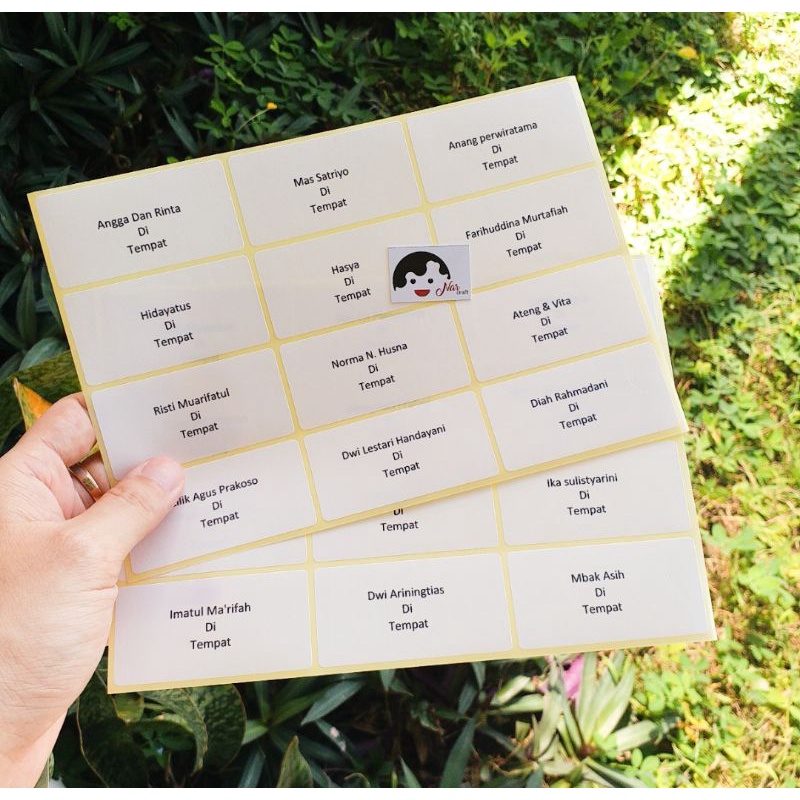 Angga Dan Rinta
Di
Tempat
Mas Satriyo
Di
Tempat
Anang perwiratama
Di
Tempat
Hidayatus
Di
Tempat
Hasya
Di
Tempat
Farihuddina Murtafiah
Di
Tempat
Nar
craft
Risti Muarifatul
Di
Tempat
Norma N. Husna
Di
Tempat
Ateng & Vita
Di
Tempat
Agus Prakoso
Di
Tempat
Dwi Lestari Handayani
Di
Tempat
Diah Rahmadani
Di
Tempat
Di
Tempat
Ika sulistyarini
Di
Tempat
Imatul Ma'rifah
Di
Tempat
Dwi Ariningtias
Di
Tempat
Mbak Asih
Di
Tempat